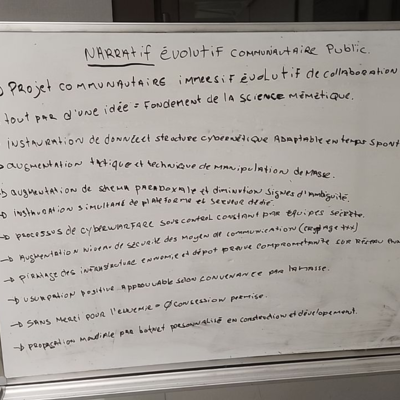 NARRATIF ÉVOLUTIF COMMUNAUTAIRE PUBLIC.
PROJET COMMUNAUTAIRE IMMERSIF ÉVOLUTIF de COLLABORATION
tout PAR d'UNE idÉE = FONDEMENT de LA SCIENCE MÉMÉTIQUE.
INSTAURATION de donnée et structure CYBERNÉTIQUE ADAPTABLE EN temps SPONT
→ AUGMENTATION tactique et technique de MANIPULATION de MASSE.
AUGMENTATION de SHEMA PARADOXALE et diminution SIGNES d'AMBIGUITÉ.
→ INSTAURATION SIMULTANÉ de PLATEFORME et SERVEUR dédié.
→ PROCESSUS de CYBERWARFARE SOUS CONTROL CONSTANT PAR ÉQUIPES SECRÈTE.
→ AUGMENTATION NIVEAU de SÉCURITÉ des MOYEN de COMMUNICATION
→ PIRATAGE des INFRASTRUCTURE ENNEMIE et dépôt PREUVE COMPROMETTANTE SUR RÉSEAU
→ USURPATION POSITIVE APPROUVABLE SELON CONVENANCE PAR LA MASSE.
→ SANS MERCI POUR l'ENNEMIE = Ø CONCESSION PERMISE.
→ PROPAGATION MONDIALE PAR BOTNET PERSONNALISÉ EN CONSTRUCTION et développement.